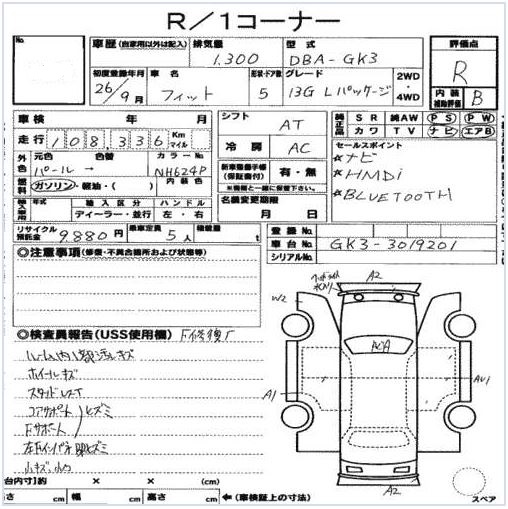 R／1コーナー
車歴 (自家用以外は記入) 排気量 1,300 型式 DBA-GK3 評価点 R
初度登録年月 26/9月 車名 フィット 形状・ドア数 5 グレード 13G Lパッケージ 2WD ・4WD 内装補助評価 B
車検 年 月 シフト AT 純正品 SR 純AW PS PW
カワ TV ナビ エアB
走行 108,336 Km マイル 冷房 AC セールスポイント
外色 元色 パール → 色替 カラーNo. NH624P 新車整備手帳(保証書付) 有・無 ☆ナビ
※機関と一緒に保管下さい。 ☆HMDi
燃料 ガソリン・軽油・( ) 内装色 ☆BLUETOOTH
輸入車用 年式 輸入区分 ハンドル 名義変更期限
ディーラー・並行 左・右 月 日
リサイクル預託金 9,880円 乗車定員 5人 積載量 t 登録No.
車台No. GK3-3019201
シリアルNo.
◎注意事項 (修復・不具合箇所および状態等)
ヘッドライト A2
W2
◎検査員報告(USS使用欄) F修復了
ACA
ルーム内ハ額汚レキズ
ホイールキズ
A1 AU1
コアサポート ヒズミ
Fサポート
左Fインパネ部ヒズミ
小キズ、小凹
A2
台内寸法) × × cm
高さ cm 幅 cm 高さ cm ←(車検証上の寸法)
スペア